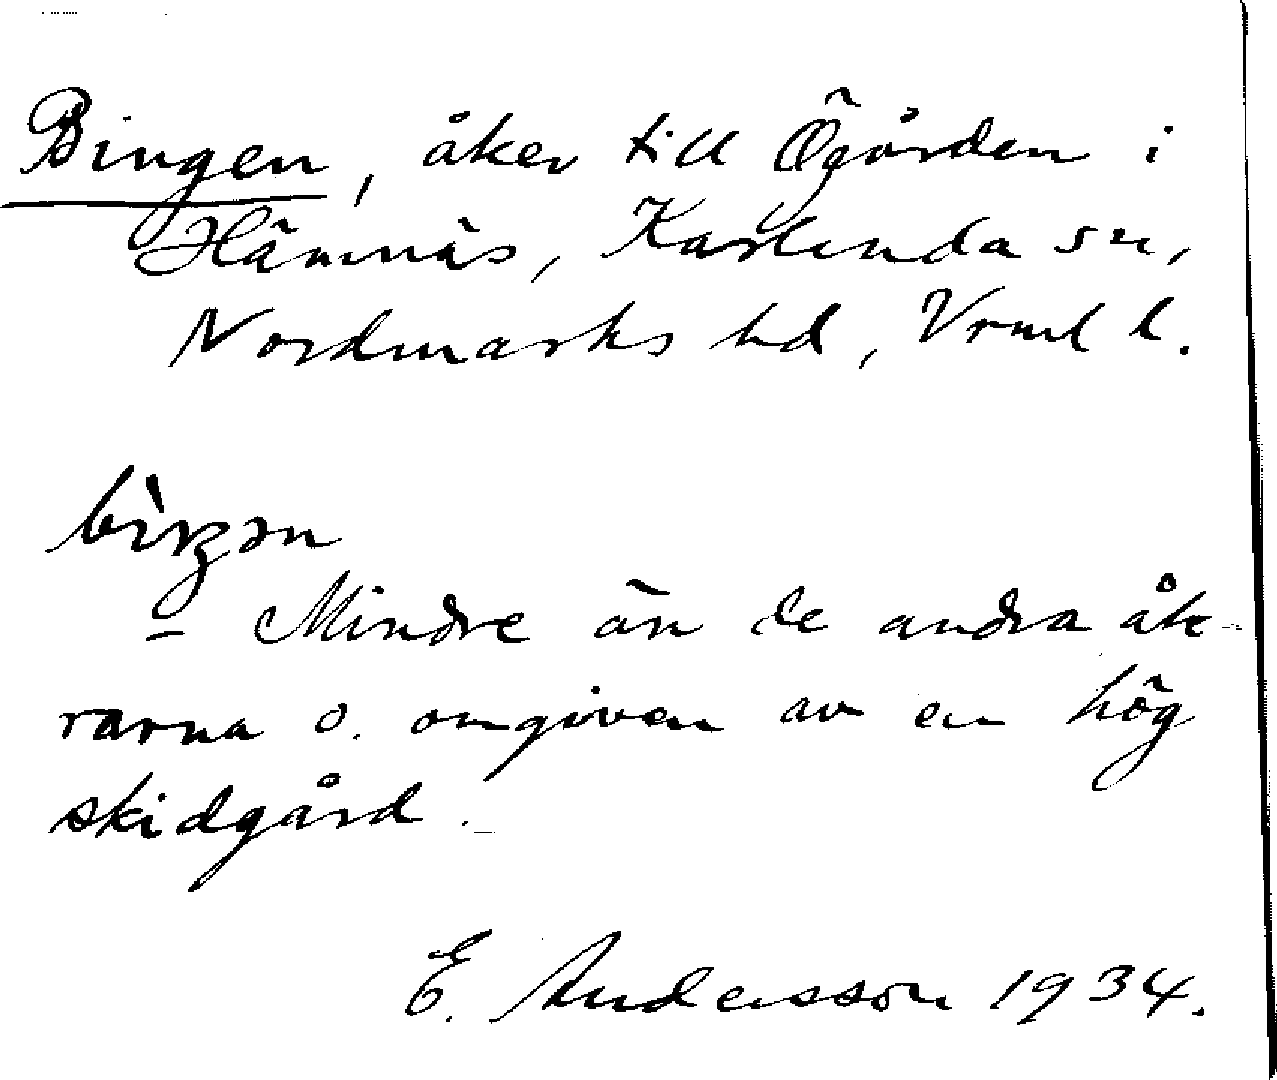 Bingen, åker till Ögården i
Hämnäs, Karlanda sn,
Nordmarks hd, Vrml l.
bìŋən
– Mindre än de andra åk-
rarna o. omgiven av en hög
skidgård.
E. Andersson 1934.